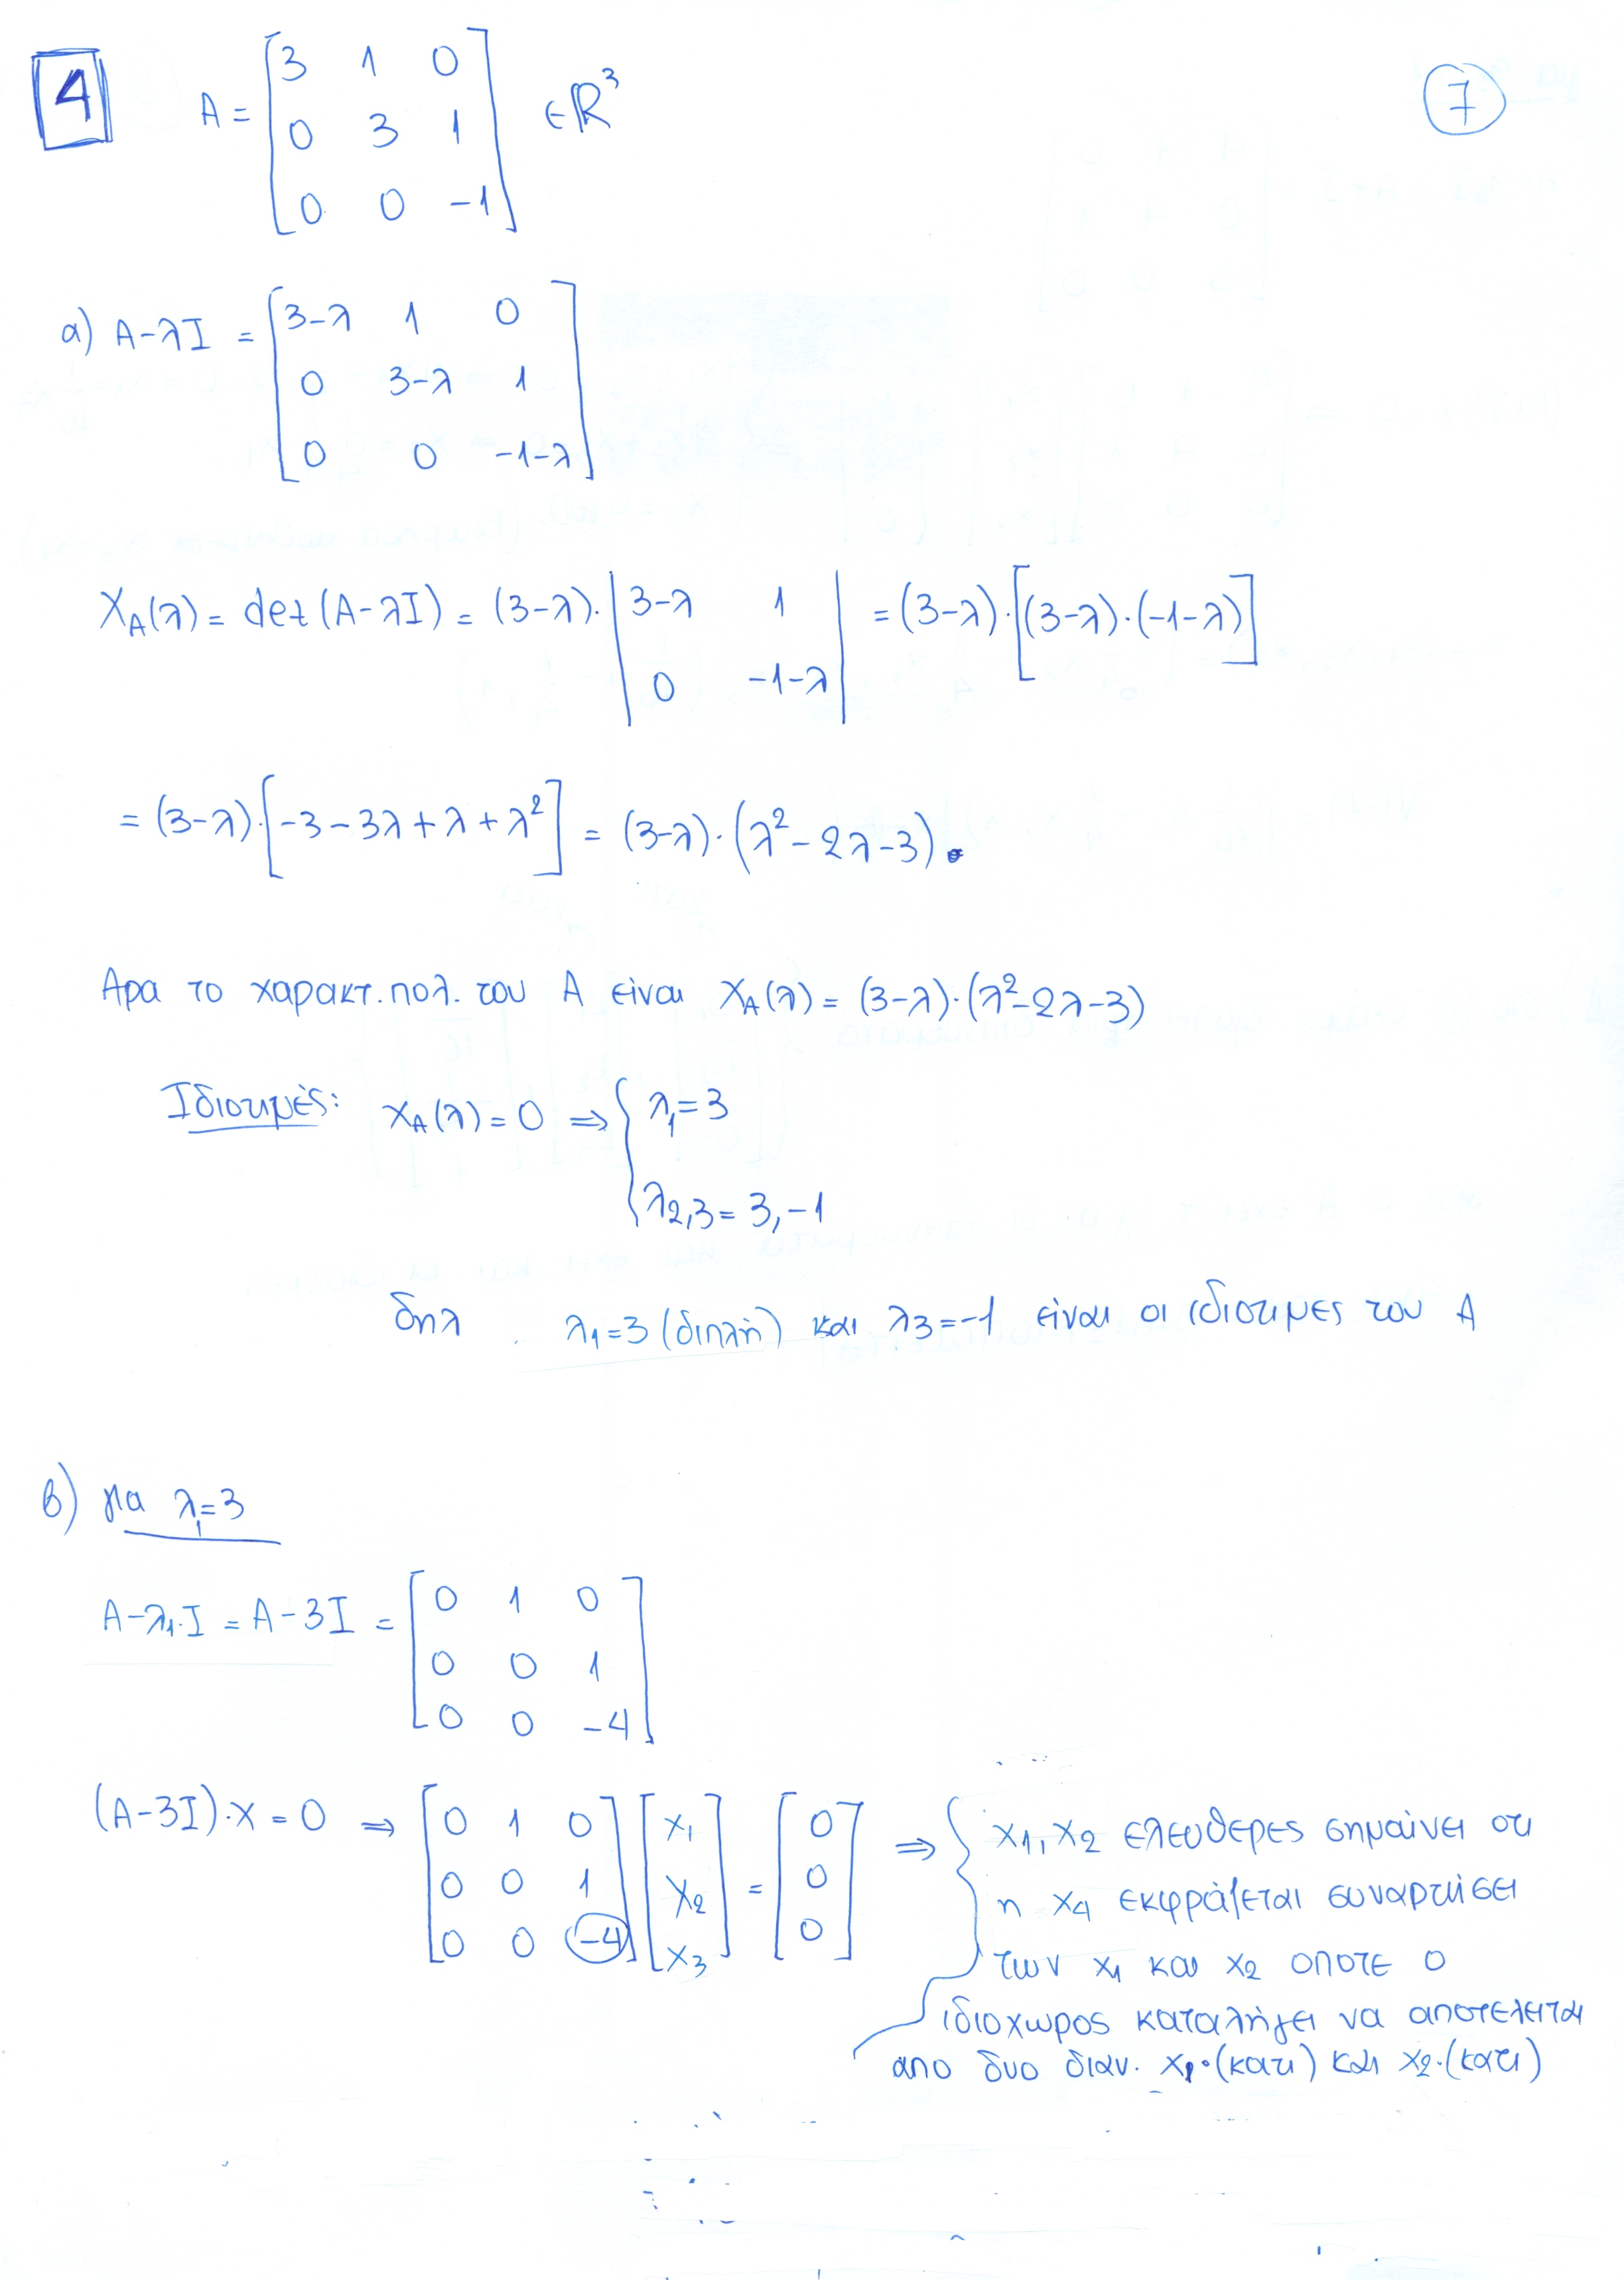 4
7
A = [3 1 0
0 3 1
0 0 -1] ∈ ℝ³
α) A-λI = [3-λ 1 0
0 3-λ 1
0 0 -1-λ]
X_A(λ) = det(A-λI) = (3-λ)·|3-λ 1
0 -1-λ| = (3-λ)·[(3-λ)·(-1-λ)]
= (3-λ)·[-3-3λ+λ+λ²] = (3-λ)·(λ²-2λ-3).
Αρα το χαρακτ. πολ. του Α είναι X_A(λ) = (3-λ)·(λ²-2λ-3)
Ιδιοτιμές: X_A(λ) = 0 ⇒ { λ₁=3
λ2,3 = 3,-1
δηλ . λ₁=3 (διπλή) και λ3=-1 είναι οι ιδιοτιμες του Α
β) για λ₁=3
A-λ₁·I = A-3I = [0 1 0
0 0 1
0 0 -4]
(A-3I)·X = 0 ⇒ [0 1 0
0 0 1
0 0 -4] [x₁
x₂
x₃] = [0
0
0] ⇒ { x₁, x₂ ελευθερες σημαίνει οτι
η x4 εκφράζεται συναρτήσει
των x₁ και x₂ οποτε ο
ιδιοχωρος καταλήγει να αποτελειται
απο δυο διαν. x₁·(κατι) και x₂·(κατι)